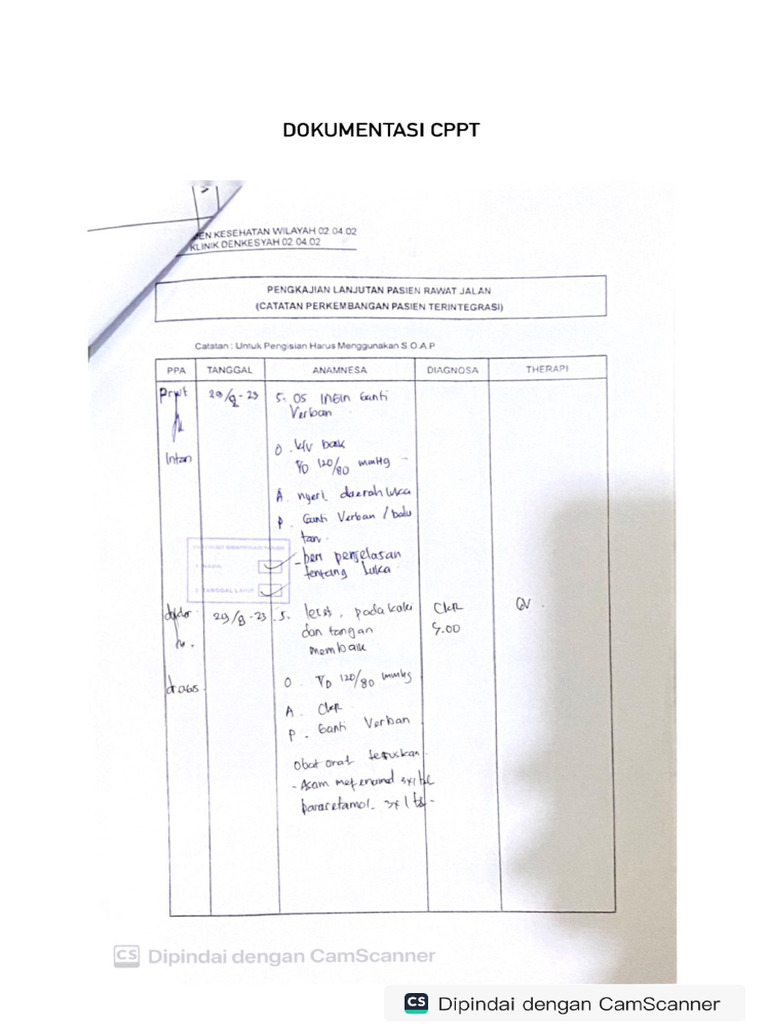 DOKUMENTASI CPPT
KESEHATAN WILAYAH 02.04.02
KLINIK DENKESYAH 02.04.02
PENGKAJIAN LANJUTAN PASIEN RAWAT JALAN
(CATATAN PERKEMBANGAN PASIEN TERINTEGRASI)
Catatan : Untuk Pengisian Harus Menggunakan S.O.A.P
PPA TANGGAL ANAMNESA DIAGNOSA THERAPI
Prwt 29/8-23 S. OS ingin Ganti
Verban
Intan
O. k/v baik
TD 120/80 mmHg -
A. nyeri daerah luka
P. Ganti Verban / balu
tan.
- beri penjelasan
tentang luka.
TANGGAL LAHIR
29/8-23 S. lecet, pada kaki CKR
dan tangan S.00
membaik
GV.
O. TD 120/80 mmHg
A. CKR
P. Ganti Verban
Obat oral teruskan
- Asam mefenamat 3x1 tab
Paracetamol 3x1 tab -
CS Dipindai dengan CamScanner
CS Dipindai dengan CamScanner